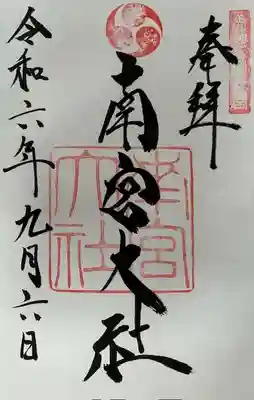 奉拝
南宮大社
南宮大社
令和六年九月六日